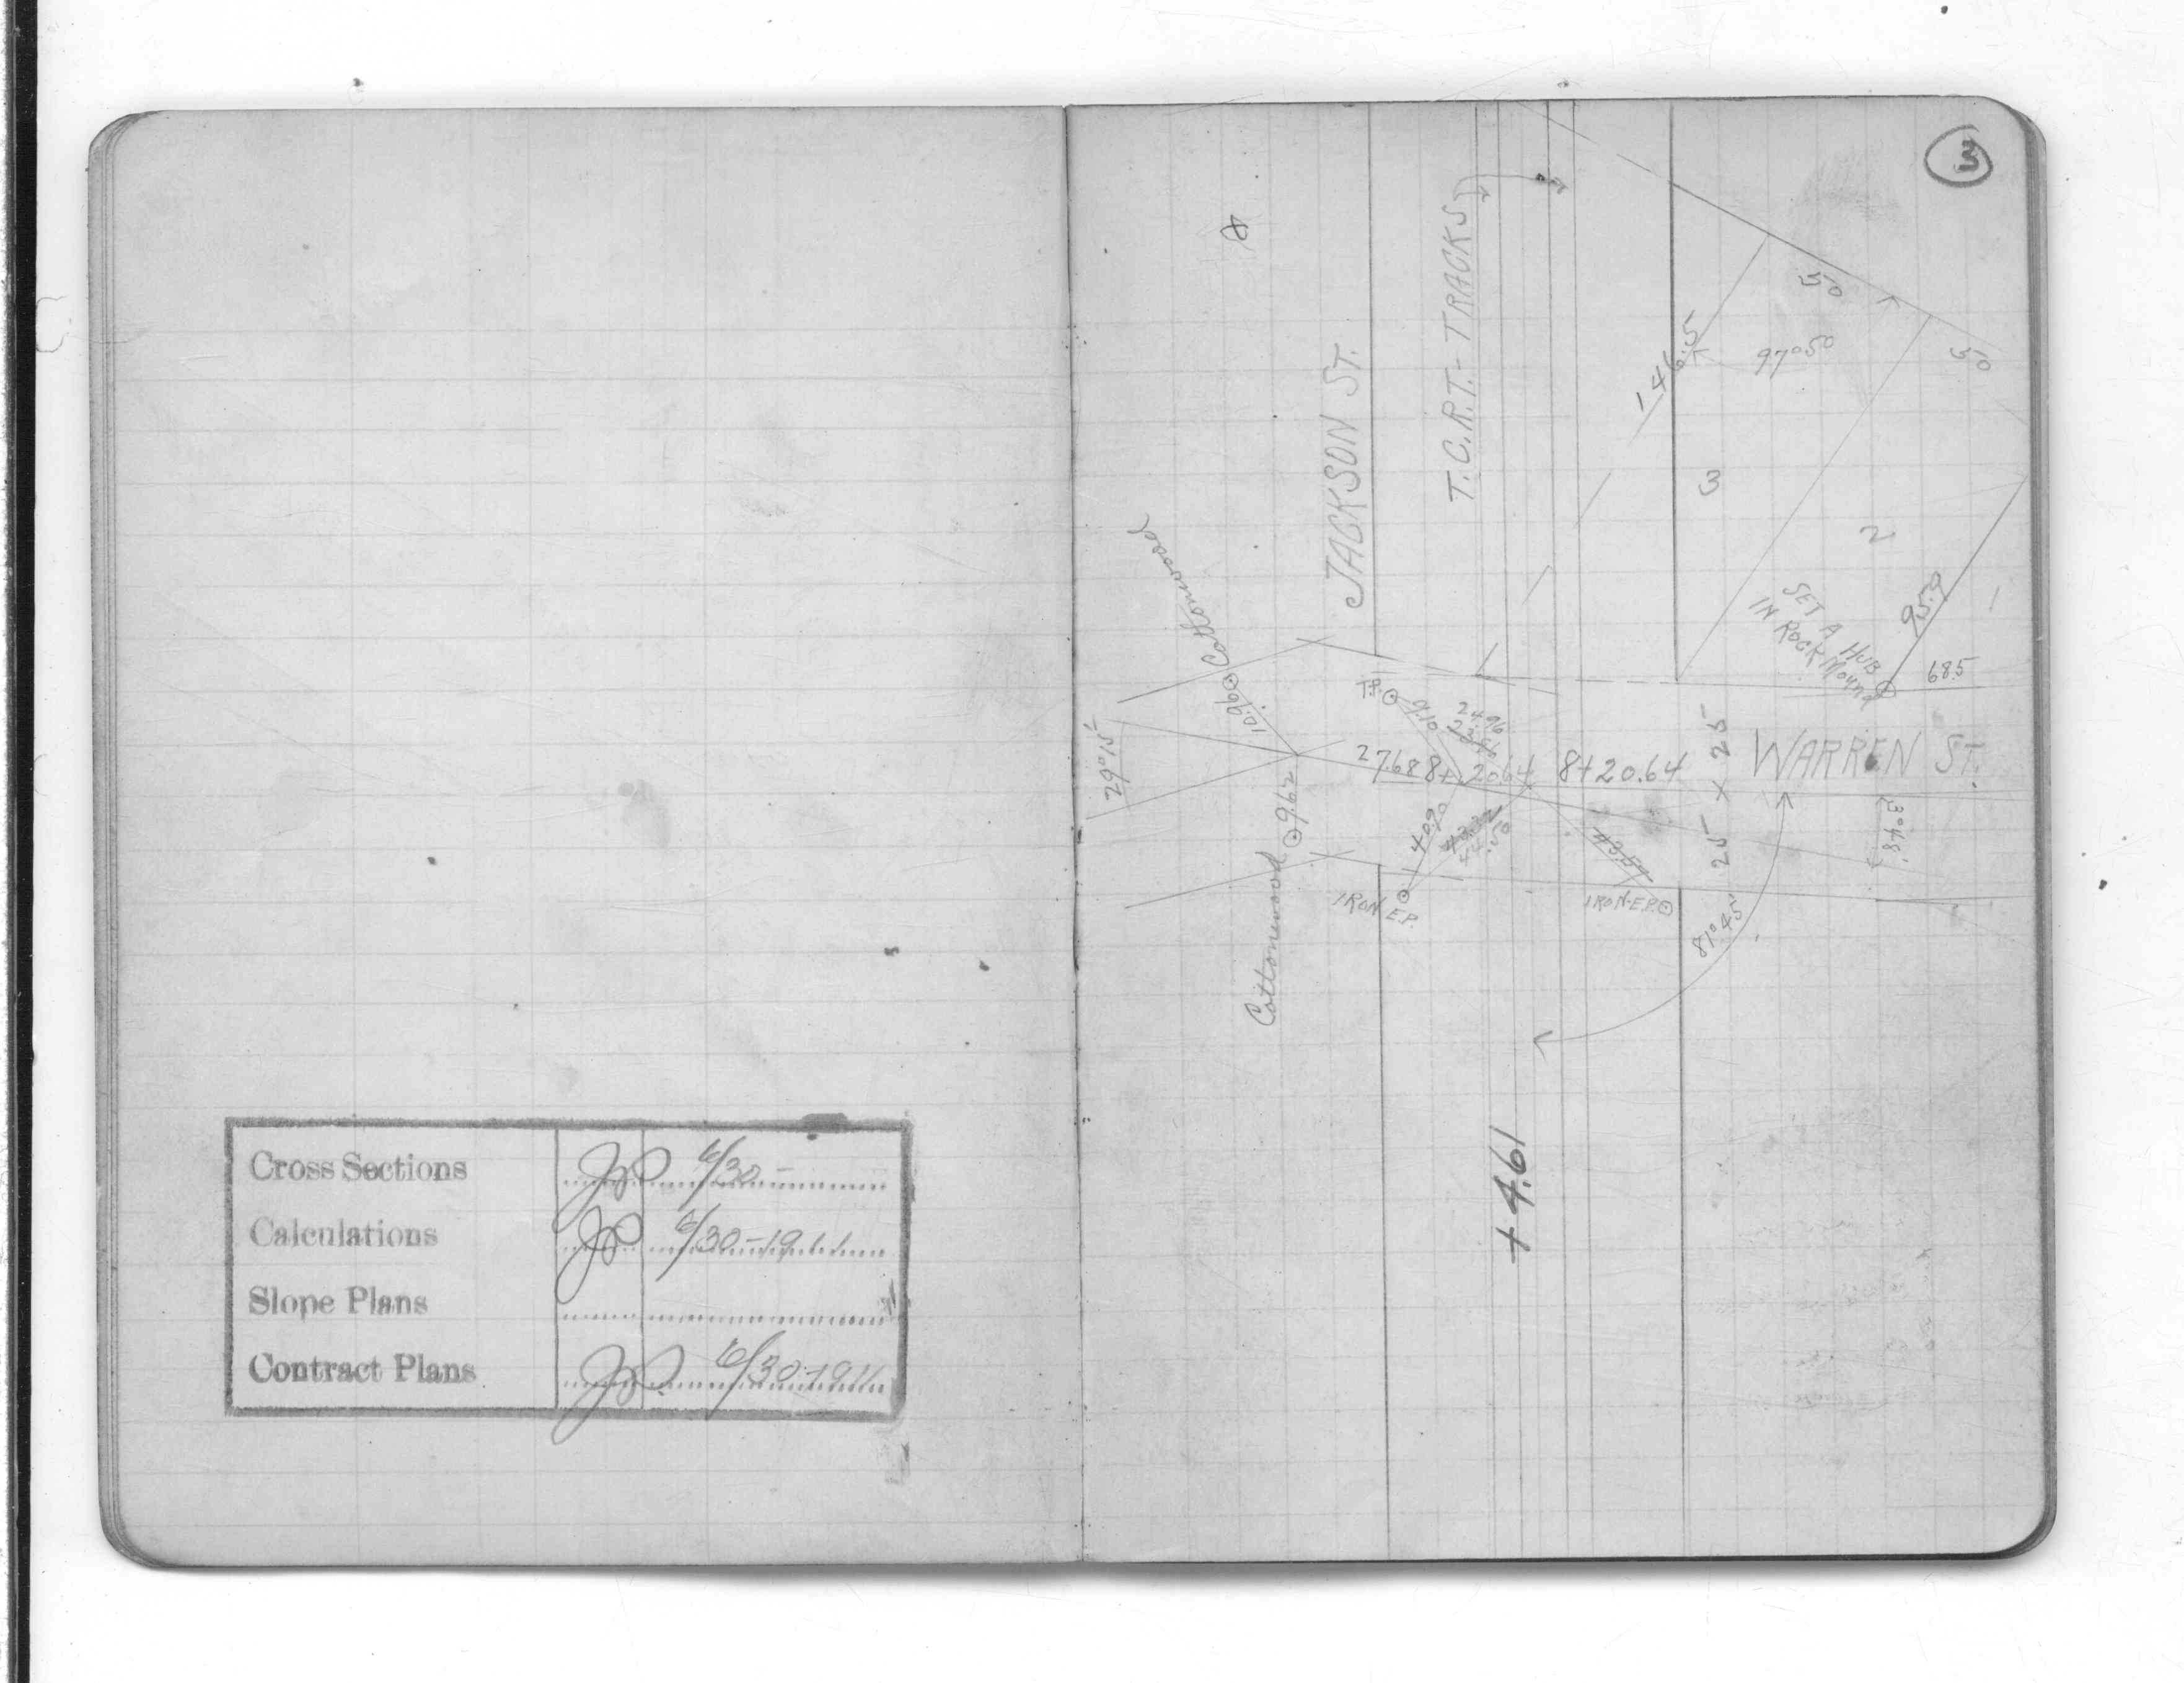 Cross Sections 6/30-
Calculations 6/30-1911
Slope Plans
Contract Plans 6/30-1911
3
JACKSON ST.
T.C.R.T.-TRACKS
50
146.5
97°50
50
3
2
SET A HUB
IN ROCK MOUND
95.9
68.5
Cottonwood
10.96
29°15'
T.P.
9.10
24.96
27.68
8+20.64
8+20.64
25 x 25
WARREN ST.
9.62
Cottonwood
40.90
44.50
43.51
3°48'
IRON E.P.
IRON-E.P.
81°45'
+4.61